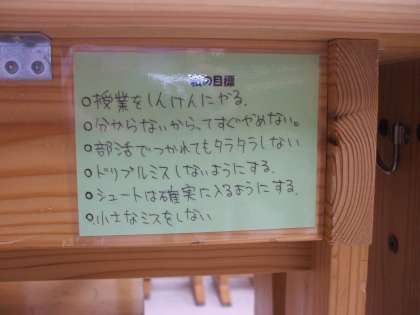 私の目標
○授業をしんけんにやる.
○分からないからってすぐやめない。
○部活でつかれてもダラダラしない
○ドリブルミスしないようにする.
○シュートは確実に入るようにする.
○小さなミスをしない